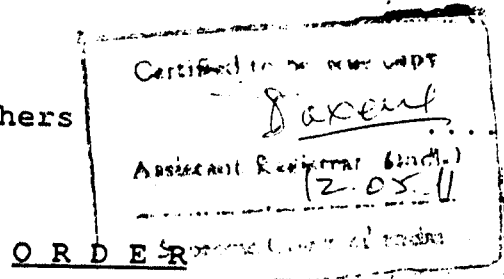 Certified to be true copy
hers
Assistant Registrar (Judl.)
12.05.11
Supreme Court of India
O R D E R